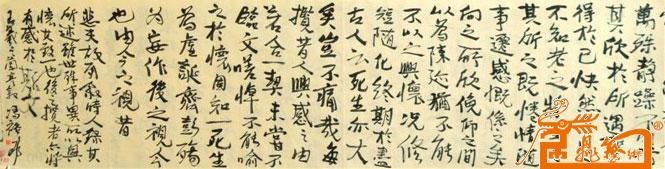 萬殊靜躁不
其欣於所遇
得於己快然
不知老之
其所之既惓情隨
事遷感慨係之矣
向之所欣俛仰之間
以為陳迹猶不能
不以之興懷況修
短隨化終期於盡
古人云死生亦大
矣豈不痛哉每
攬昔人興感之由
若合一契未嘗不
臨文嗟悼不能喻
之於懷固知一死生
為虛誕齊彭殤
為妄作後之視今
也由今之視昔
悲夫故列敘時人錄其
所述雖世殊事異所以興
懷其致一也後之攬者亦將
有感於斯文